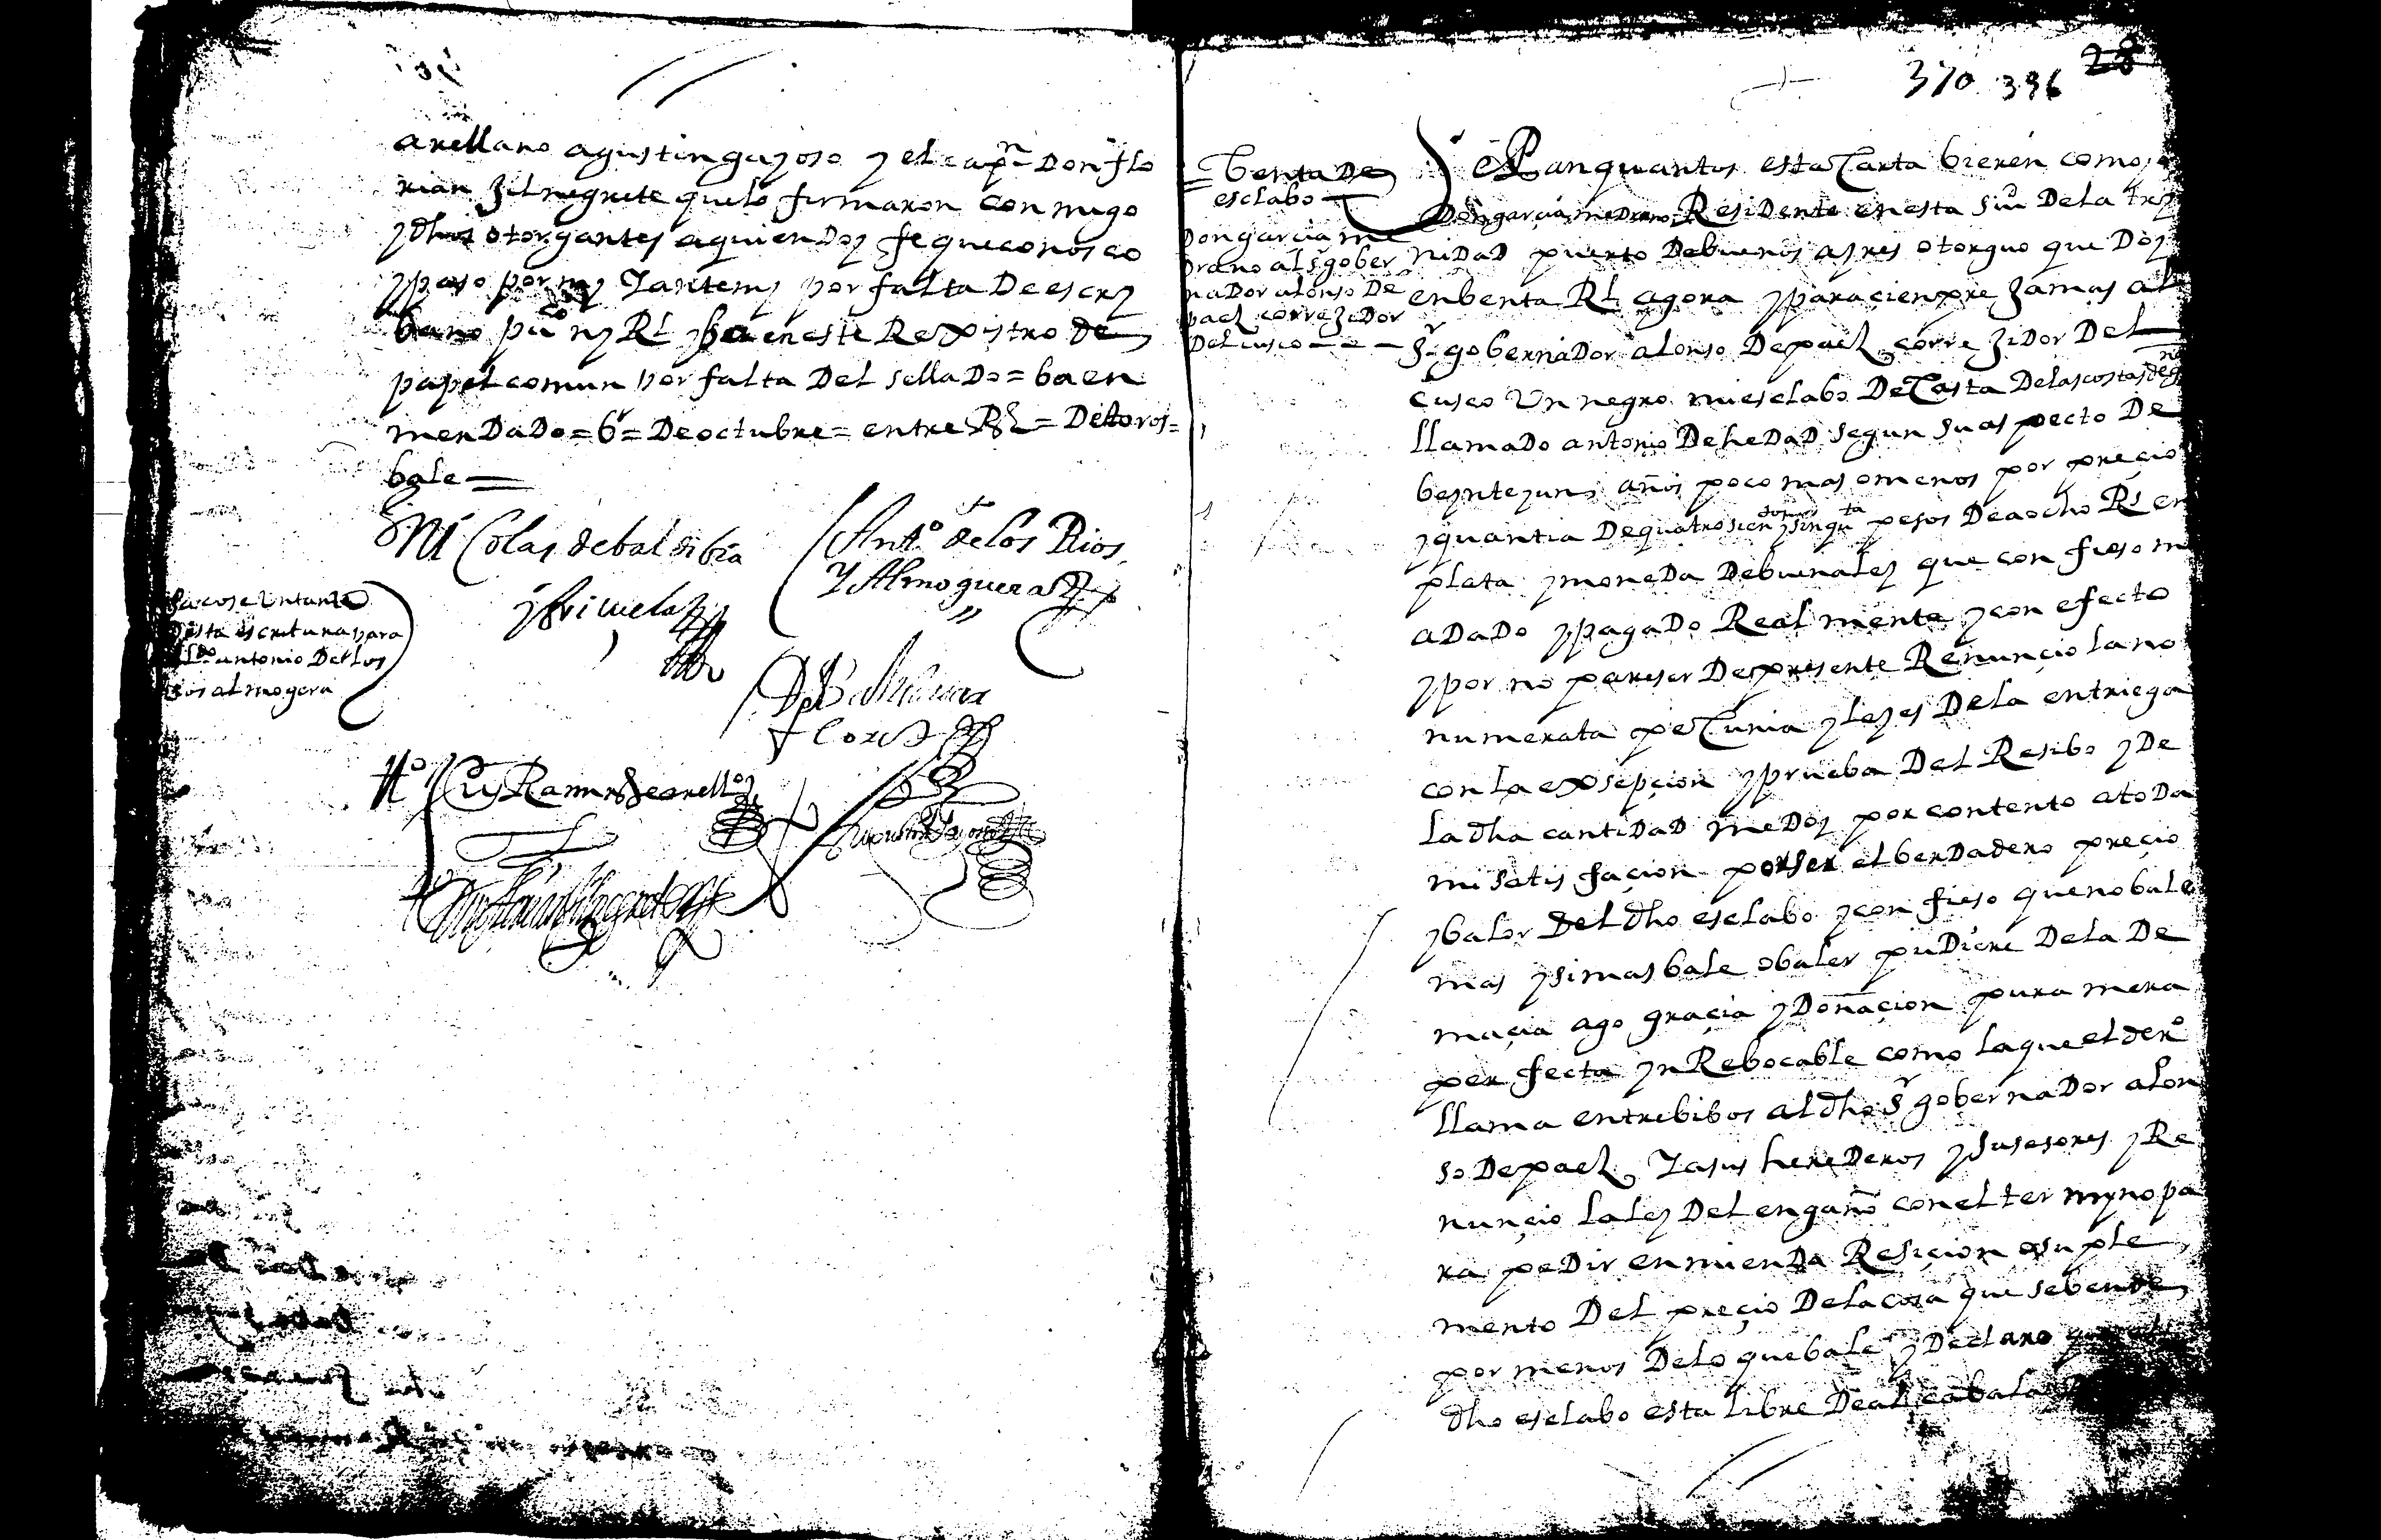 arellano agustin gayoso y el capn Don flo
rian Jil negrete que lo firmaron con migo
y dhos otorgantes a quien Doy fe que conosco
y paso por my Y ante my por falta De escry
bano puco ny Rl y ba en este Rexistro de
papel comun por falta Del sellado = ba en
mendado = 6r = De octubre = entre R{s} = De toros =
bale =
Ni Colas de bal dibia
y bricuela
Anto de Los Rios
Y Almoguera
Sacose Un tanto
desta escritura para
el Ldo antonio De los
Rios almogera
to Cuy Ramirz de arello
Agustin Gayoso
Don florian Gil negrete
370 396 28
Benta De
esclabo
Don garcia me
drano al sr gober
nador alonso De
pael correjidor
Del cusco
Sepan quantos esta Carta bieren como yo
Don garcia medrano Residente en esta Siud De la try
nidad puerto De buenos ayres otorguo que Doy
en benta Rl agora y para cienpre Jamas al
Sr gobernador alonso De pael correjidor Del
cusco Un negro mi esclabo De Casta De las costas de gna
llamado antonio De hedad segun su aspecto De
beynte y un años poco mas o menos por preçio
y quantia De quatrosientos y sinquta pesos De a ocho Rs en
plata y moneda De buena ley que con fieso m
a dado y pagado Real mente y con efecto
y por no pareser De presente Renunçio la no
numerata peCunia y leyes De la entriega
con la exsepçion y prueba Del Resibo y De
la dha cantidad me Doy por contento a toda
mi satisfaçion por ser el berdadero preçio
y balor Del dho esclabo y con fieso que no bale
mas y si mas bale o baler pudiere De la De
maçia ago graçia y Donaçion pura mera
perfecta yn Rebocable como la que el dero
llama entre bibos al dho Sr gobernador alon
so De pael Y a sus herederos y Susesores y Re
nunçio la ley Del engaño con el termyno pa
ra pedir enmienda Resiçion o suple
mento Del preçio De la cosa que se bende
por menos De lo que bale y Declaro que el
dho esclabo esta libre De alcabala